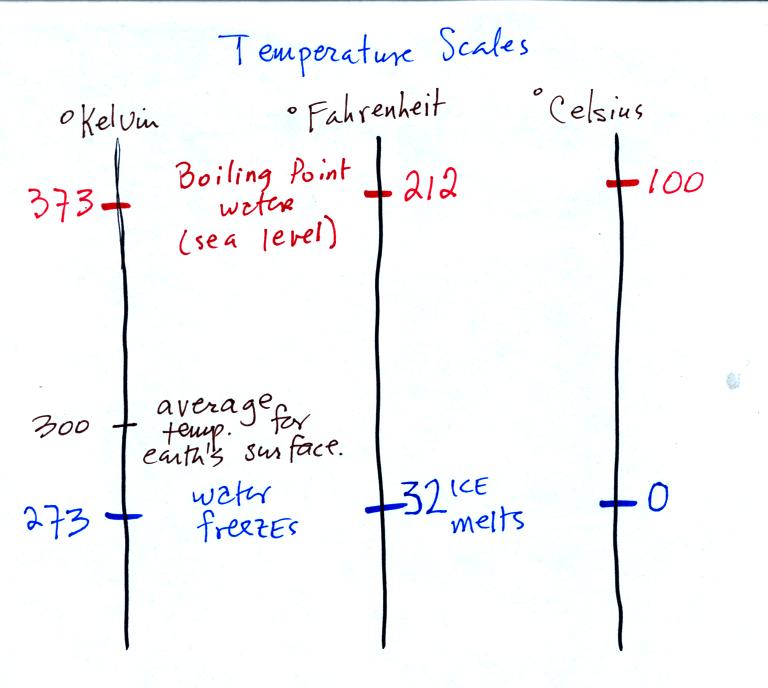 Temperature Scales
°Kelvin
°Fahrenheit
°Celsius
373
Boiling Point
water
(sea level)
212
100
300
average
temp. for
earth's surface.
273
water
freezes
32 ICE
melts
0